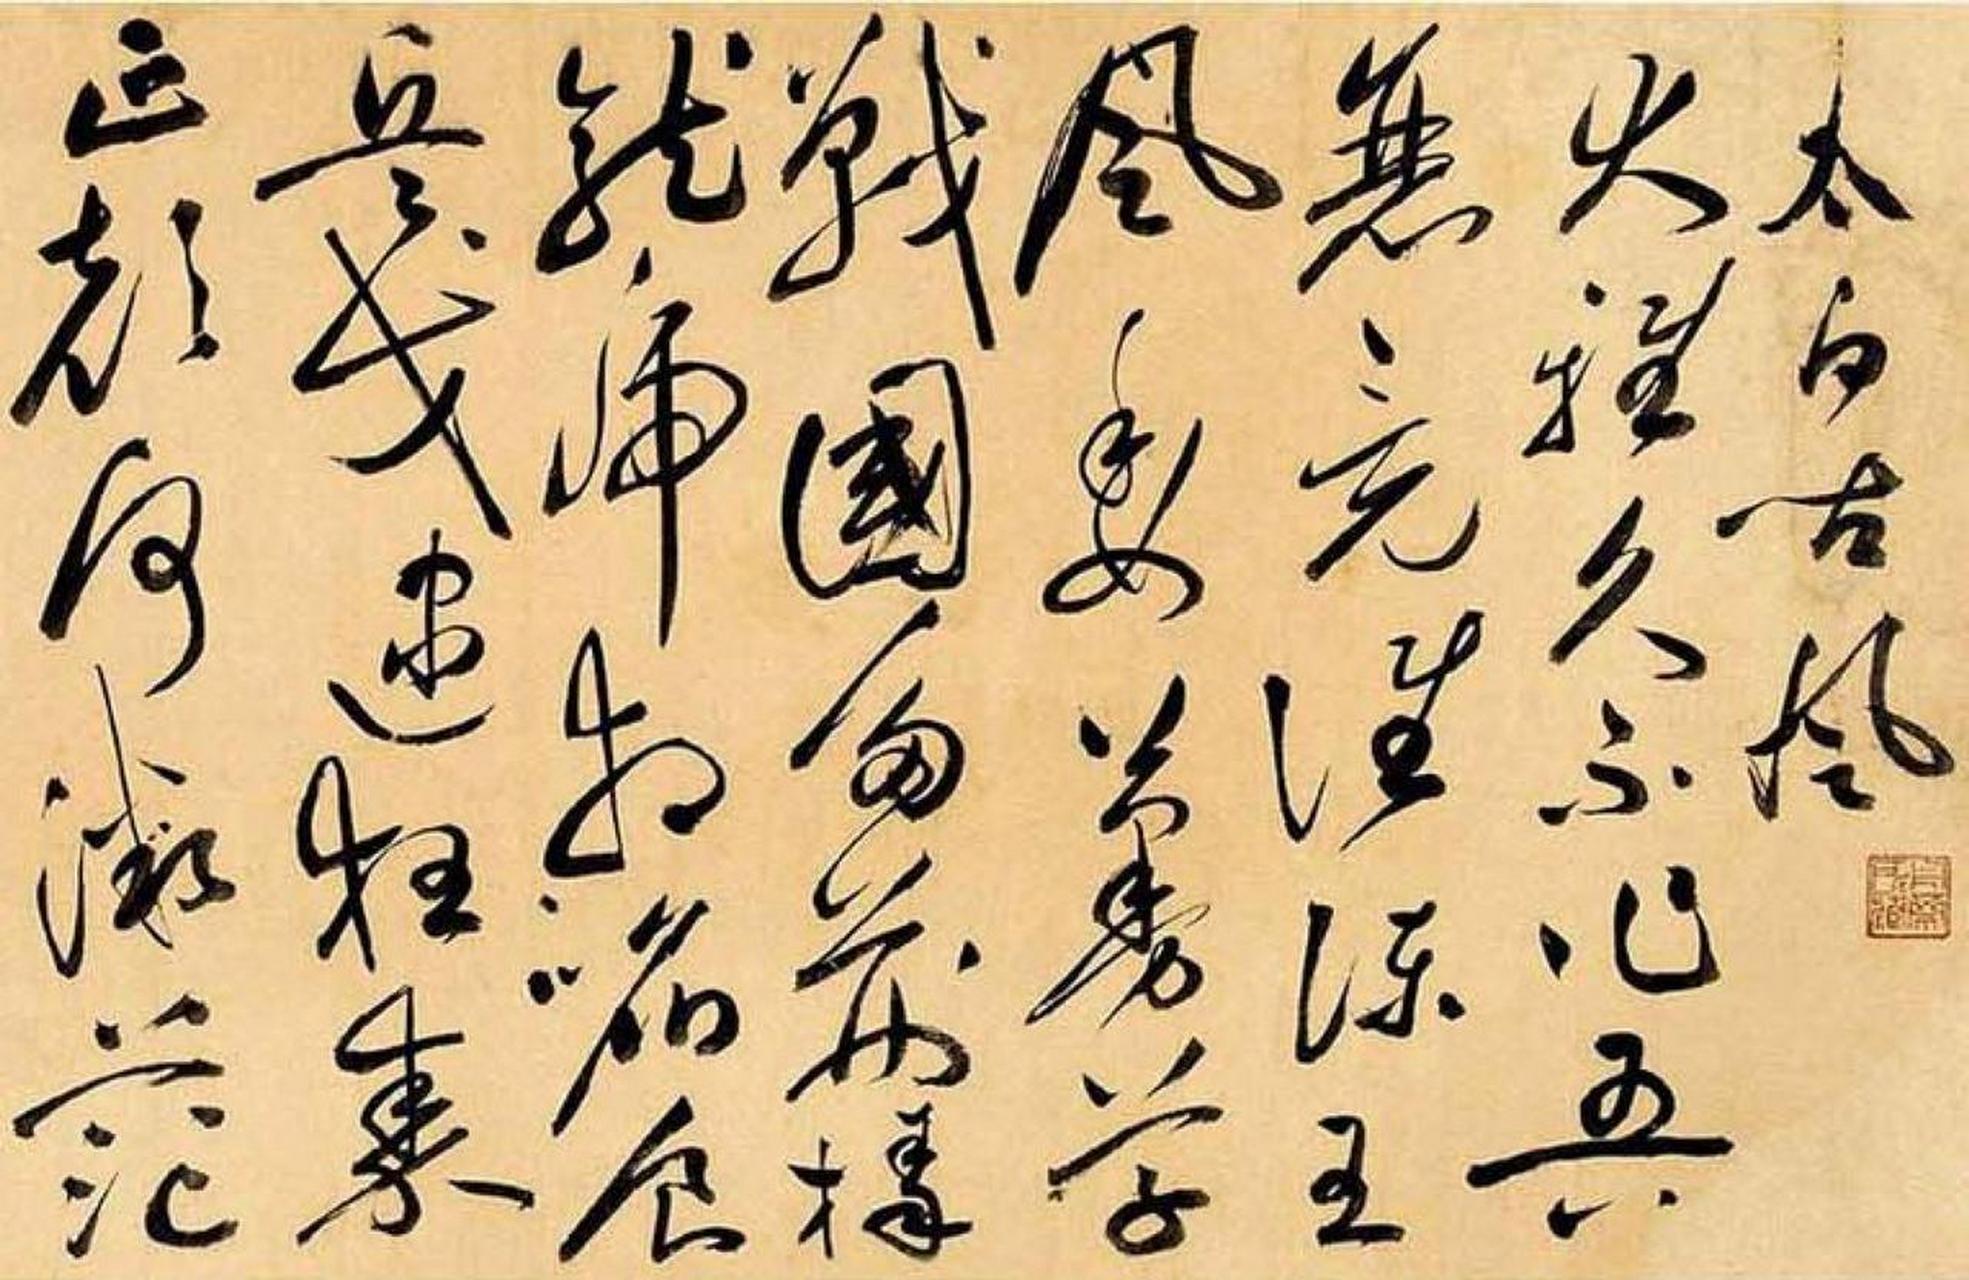 太白古風
大雅久不作吾
衰竟誰陳王
風委蔓草
戰國多荊榛
龍虎相啗食
兵戈逮狂秦
正聲何微茫